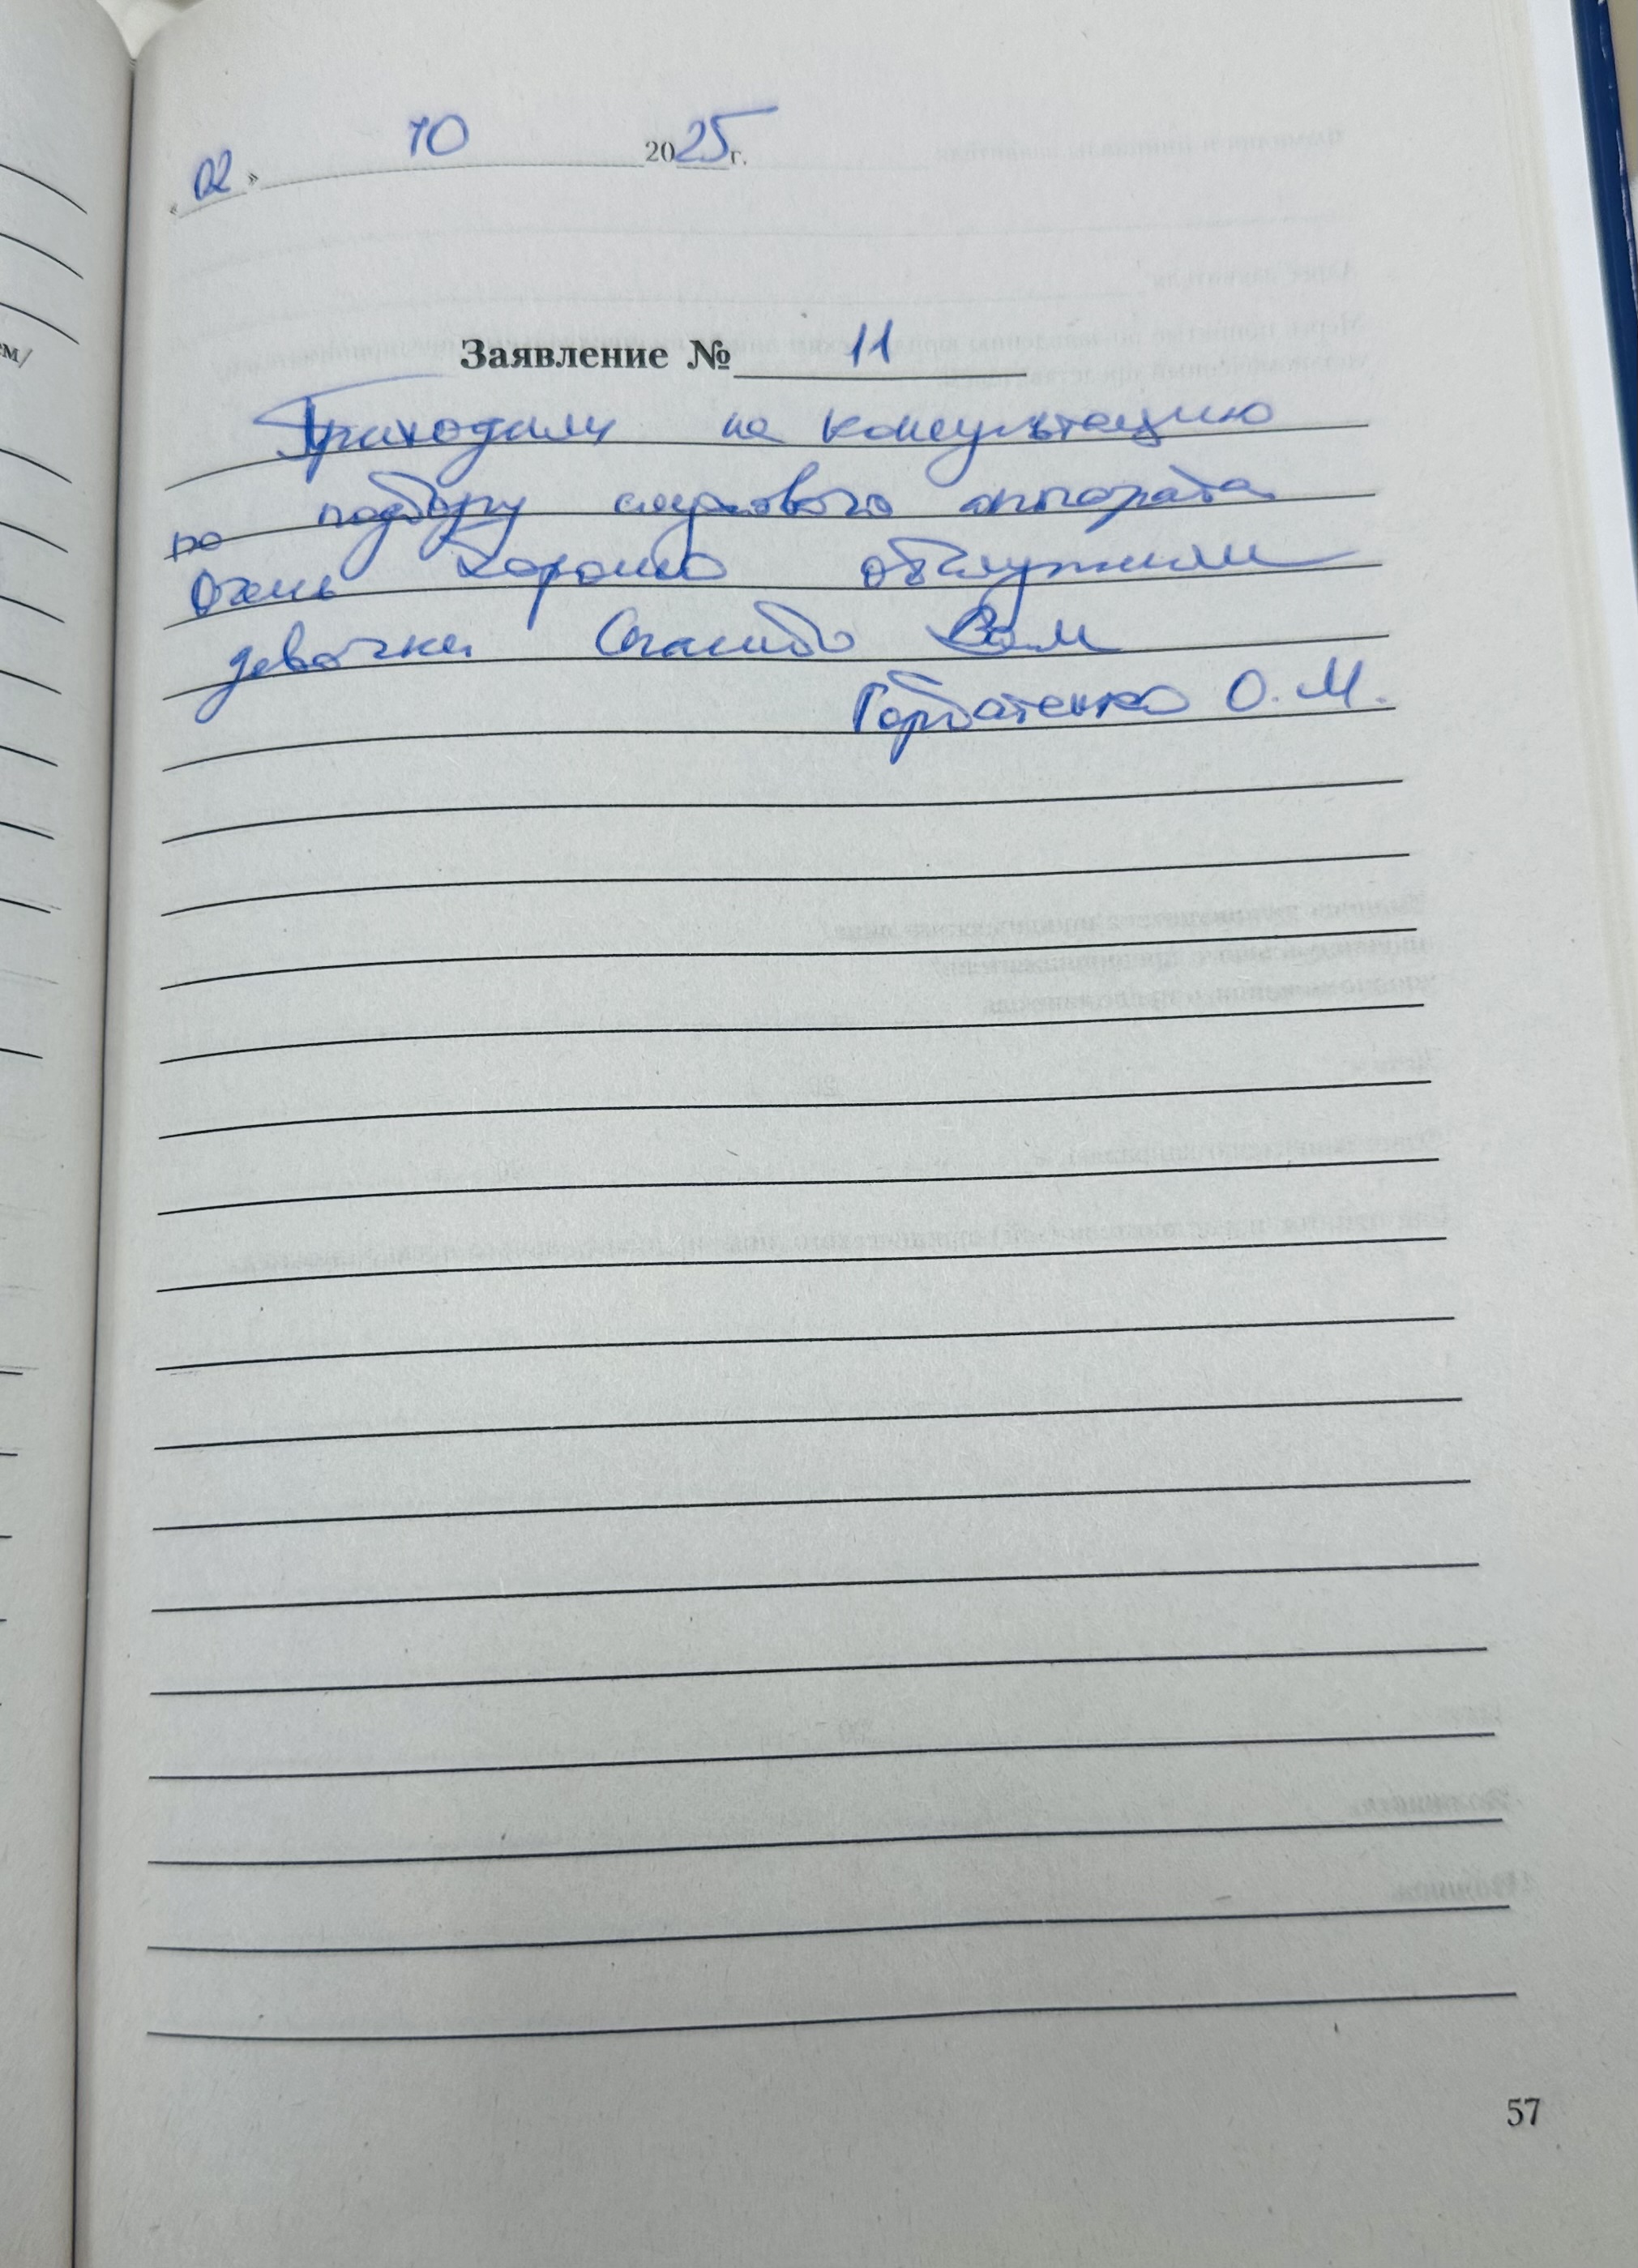 « 02 » 10 2025 г.
Заявление № 11
Приходили на консультацию
по подбору слухового аппарата
Очень хорошо обслужили
девочки Спасибо Вам
Горбатенко О. М.
ем/
57